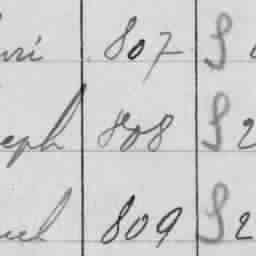 uri 807 S
eph 808 S 2
uel 809 S 2